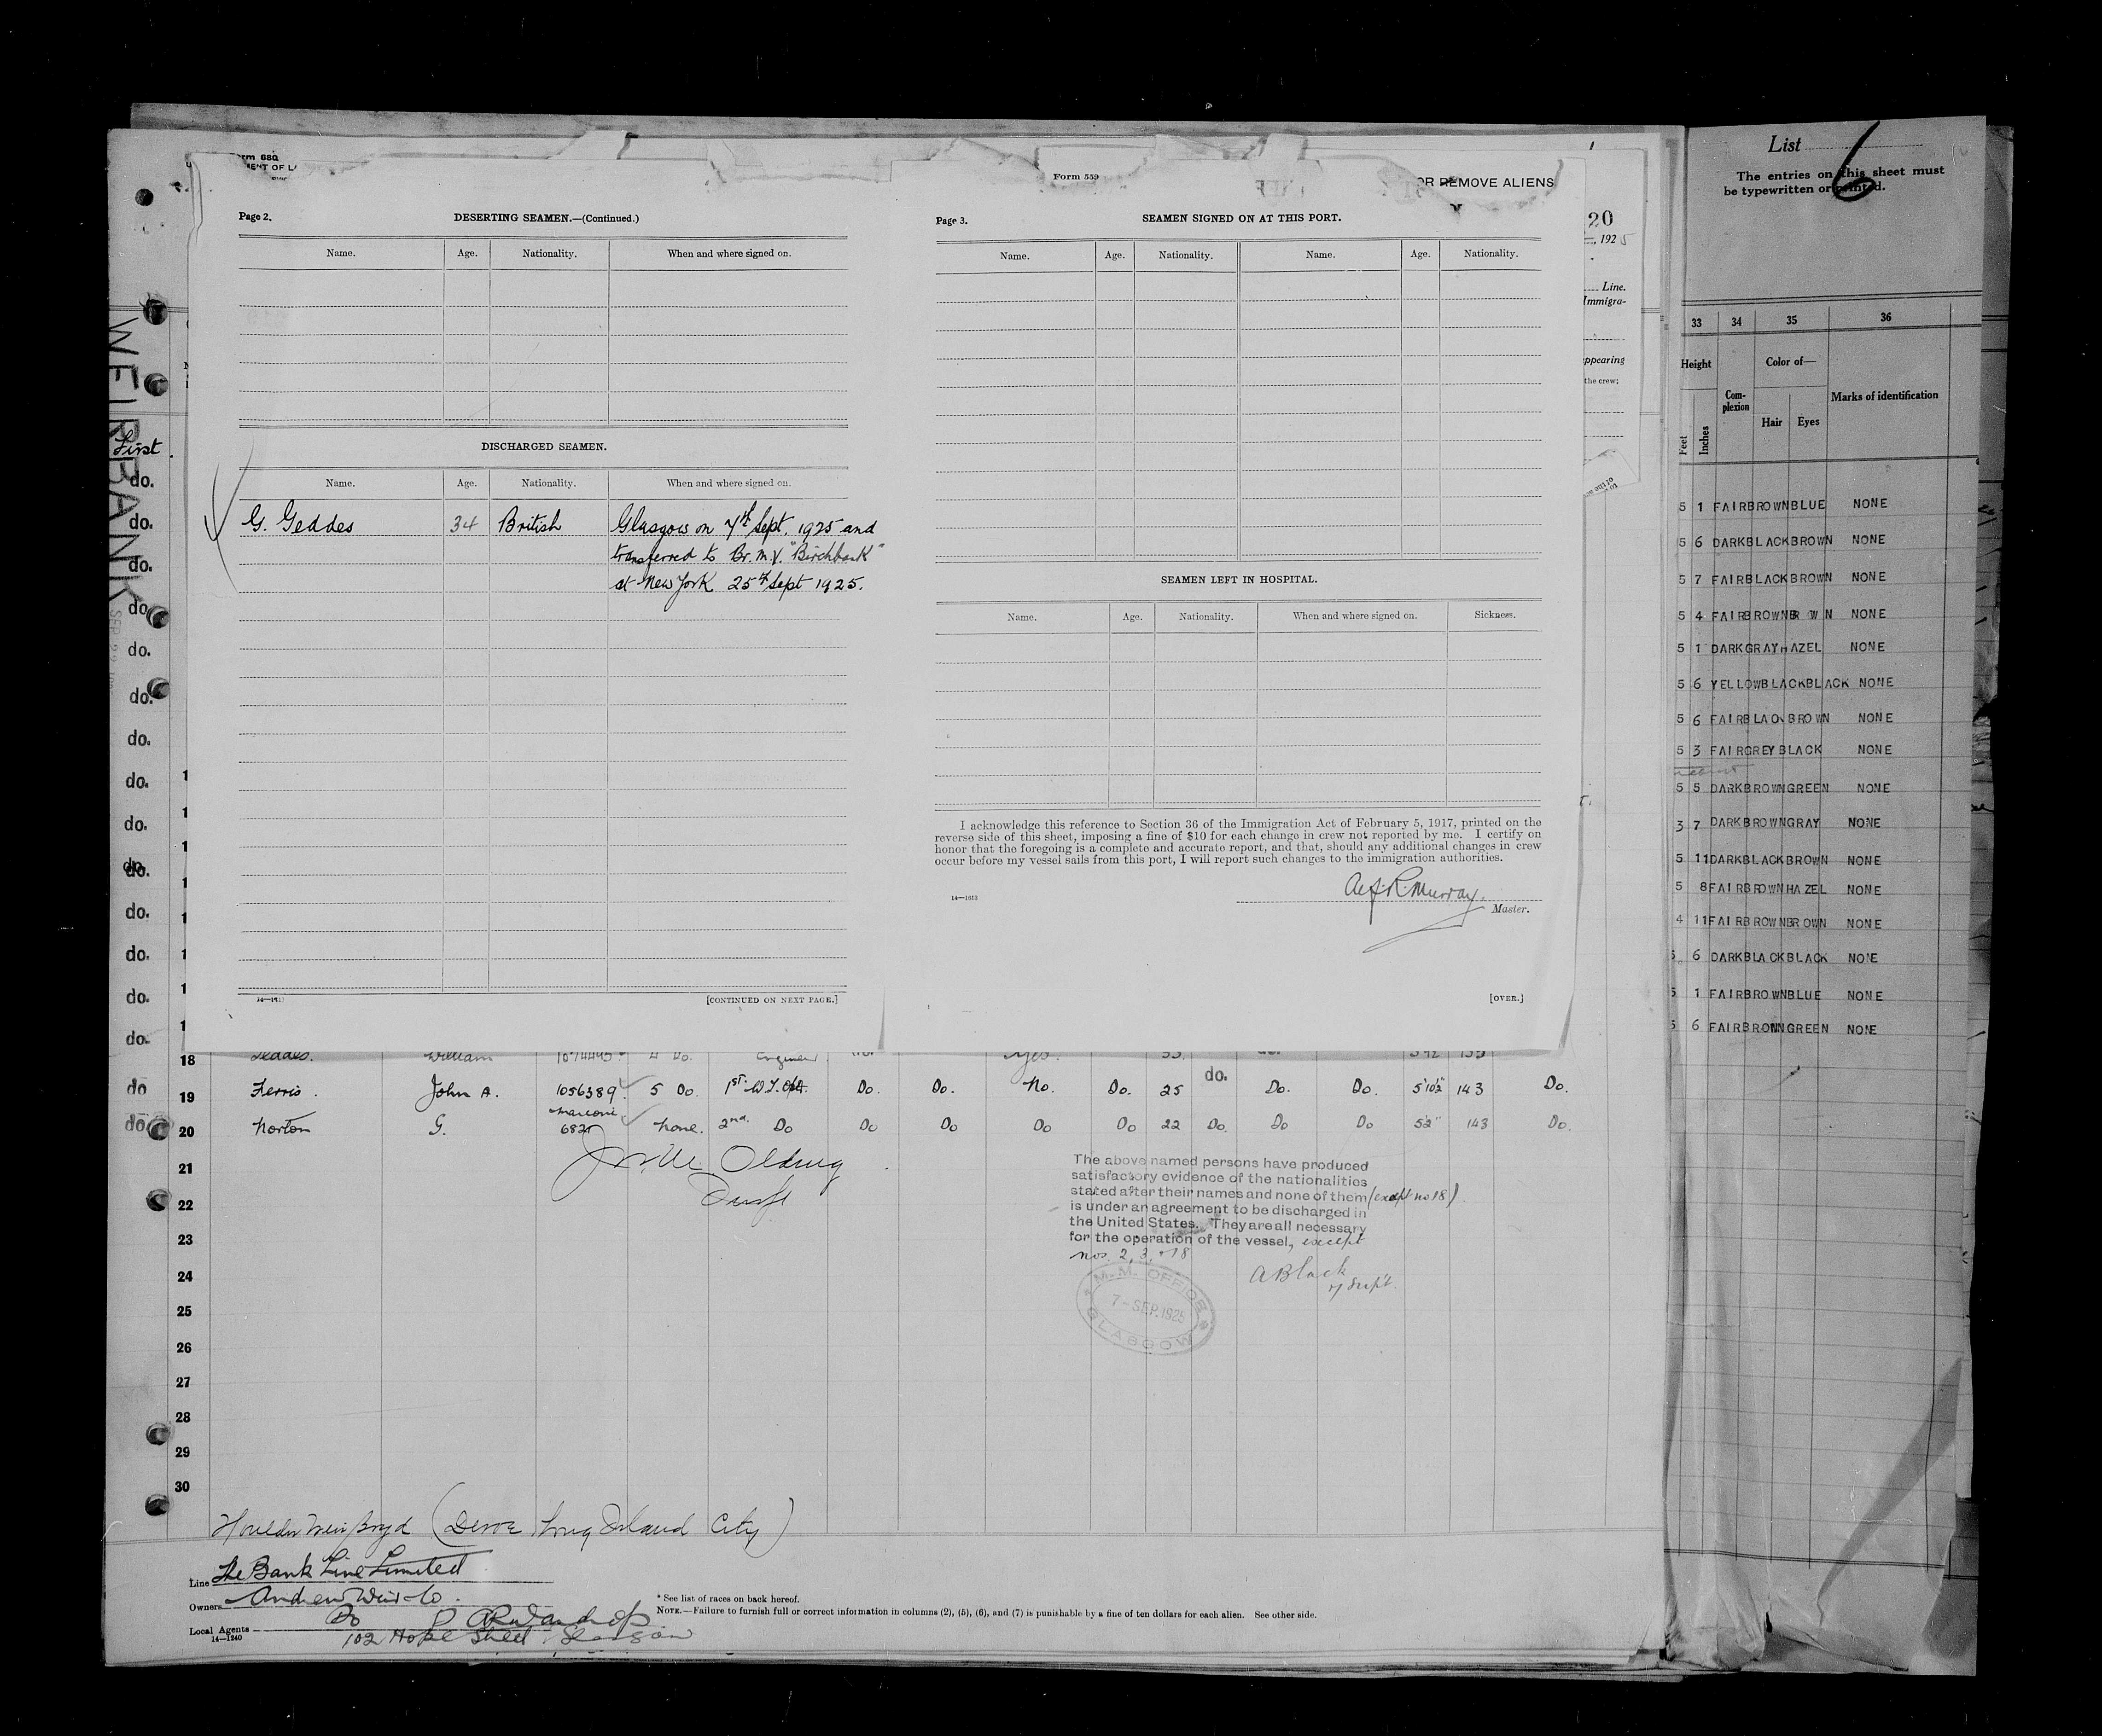 Form 680
Page 2.
DESERTING SEAMEN.—(Continued.)
Name. Age. Nationality. When and where signed on.
DISCHARGED SEAMEN.
Name. Age. Nationality. When and where signed on.
G. Geddes 34 British Glasgow on 7th Sept. 1925 and
transferred to Br. M.V. "Birchbank"
at New York 25th Sept 1925.
[CONTINUED ON NEXT PAGE.]
Form 559
OR REMOVE ALIENS
Page 3.
SEAMEN SIGNED ON AT THIS PORT.
Name. Age. Nationality. Name. Age. Nationality.
SEAMEN LEFT IN HOSPITAL.
Name. Age. Nationality. When and where signed on. Sickness.
I acknowledge this reference to Section 36 of the Immigration Act of February 5, 1917, printed on the
reverse side of this sheet, imposing a fine of $10 for each change in crew not reported by me. I certify on
honor that the foregoing is a complete and accurate report, and that, should any additional changes in crew
occur before my vessel sails from this port, I will report such changes to the immigration authorities.
Alf. R. Murray.
Master.
[OVER.]
20
, 1925
Line.
Immigra-
ppearing
the crew;
WEIRBANK
First
do.
do.
do.
do.
do.
do.
do.
do.
do.
do.
do.
do.
do.
do.
18 William Engineer Yes.
do 19 Ferris. John A. 1056389 5 Do. 1st W.T. Do. Do. No. Do. 25 do. Do. Do. 5'10½" 143 Do.
do 20 Norton G. Marconi 682 None. 2nd. Do Do Do Do Do 22 Do. Do Do 5'2" 143 Do.
21
22
23
24
25
26
27
28
29
30
The above named persons have produced
satisfactory evidence of the nationalities
stated after their names and none of them (except no 18).
is under an agreement to be discharged in
the United States. They are all necessary
for the operation of the vessel, except
nos. 2, 3, + 18
A Black
M.M. OFFICE
7-SEP.1925
GLASGOW
Houlder Weir Boyd (Devoe Long Island City)
Line The Bank Line Limited
Owners Andrew Weir & Co.
Local Agents Do
14—1240
102 Hope Street, Glasgow
* See list of races on back hereof.
NOTE.—Failure to furnish full or correct information in columns (2), (5), (6), and (7) is punishable by a fine of ten dollars for each alien. See other side.
List 6
The entries on this sheet must
be typewritten or printed.
33 34 35 36
Height Complexion Color of— Marks of identification
Feet Inches Hair Eyes
5 1 FAIR BROWN BLUE NONE
5 6 DARK BLACK BROWN NONE
5 7 FAIR BLACK BROWN NONE
5 4 FAIR BROWN BROWN NONE
5 1 DARK GRAY HAZEL NONE
5 6 YELLOW BLACK BLACK NONE
5 6 FAIR BLACK BROWN NONE
5 3 FAIR GREY BLACK NONE
5 5 DARK BROWN GREEN NONE
3 7 DARK BROWN GRAY NONE
5 11 DARK BLACK BROWN NONE
5 8 FAIR BROWN HAZEL NONE
4 11 FAIR BROWN BROWN NONE
5 6 DARK BLACK BLACK NONE
5 1 FAIR BROWN BLUE NONE
5 6 FAIR BROWN GREEN NONE